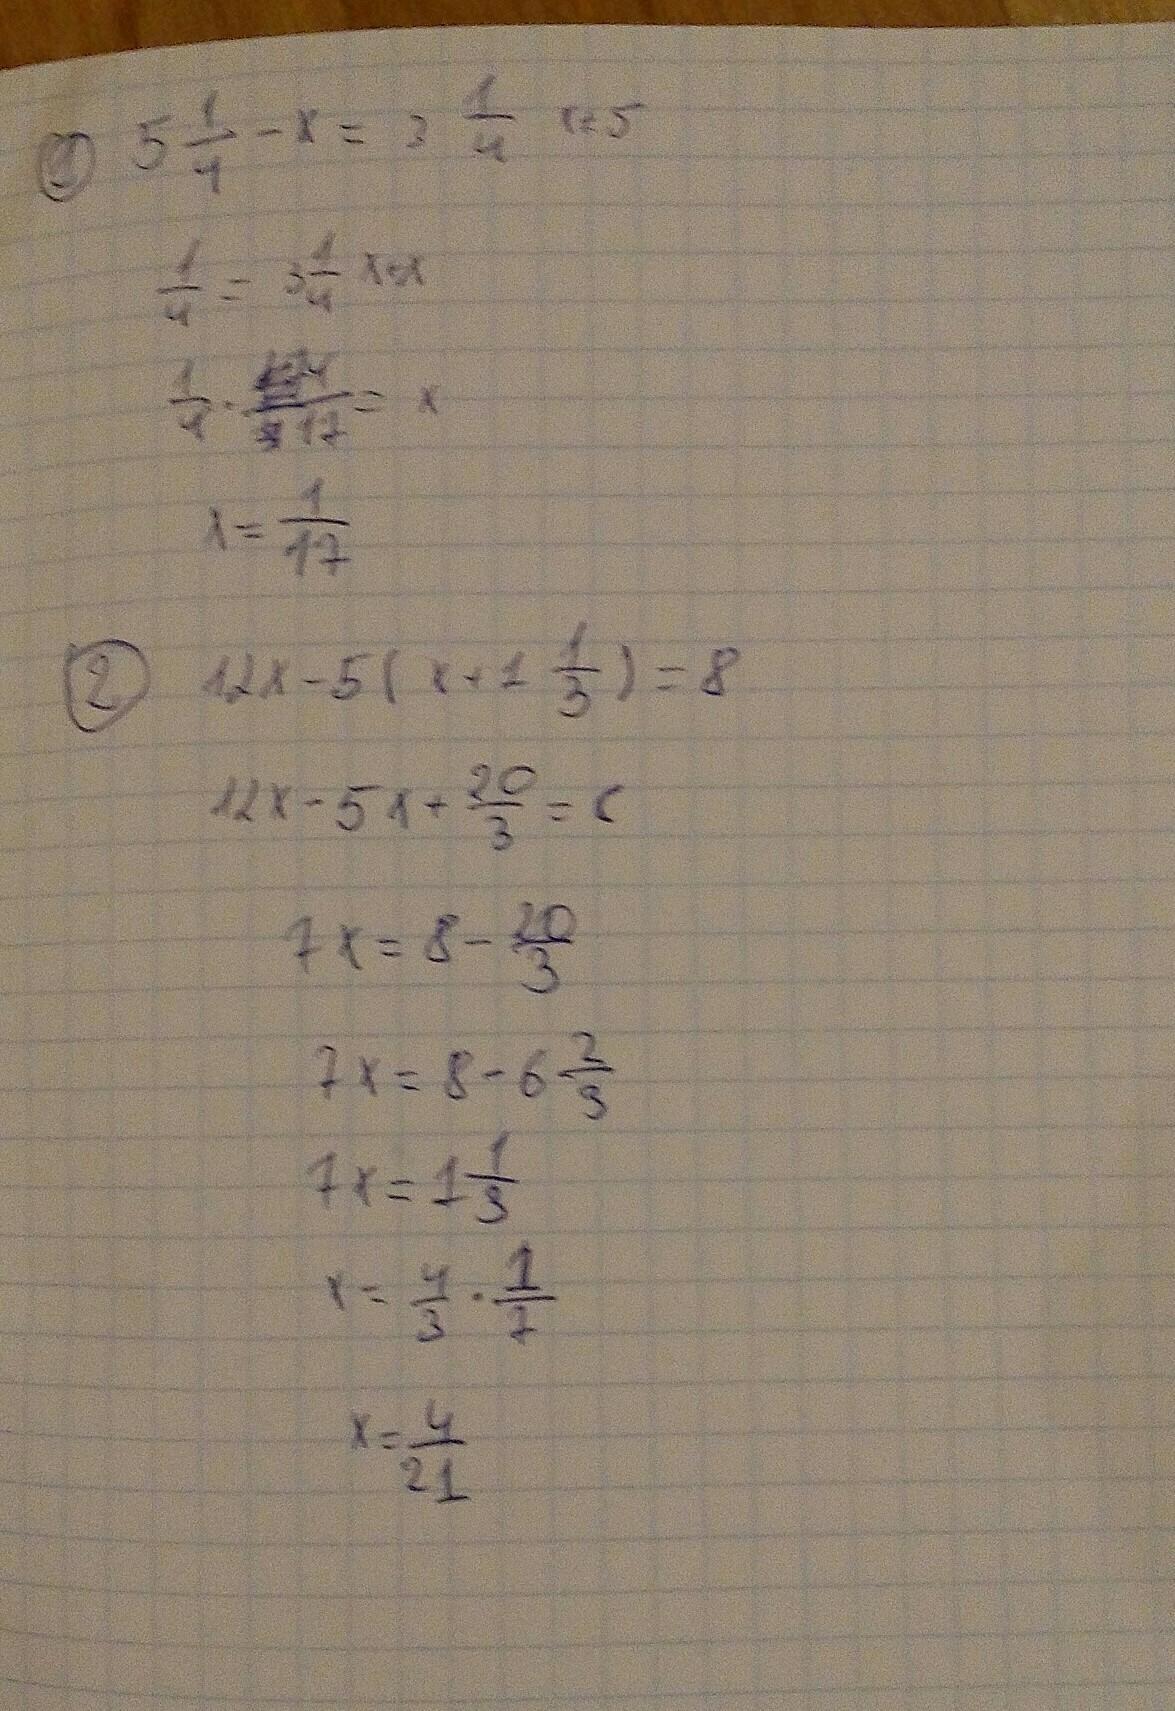 ① 5 1/4 - x = 3 1/4 x + 5
1/4 = 3 1/4 x + x
1/4 · 4/17 = x
x = 1/17
② 12x - 5( x + 1 1/3 ) = 8
12x - 5x + 20/3 =
7x = 8 - 20/3
7x = 8 - 6 2/3
7x = 1 1/3
x = 4/3 · 1/7
x = 4/21